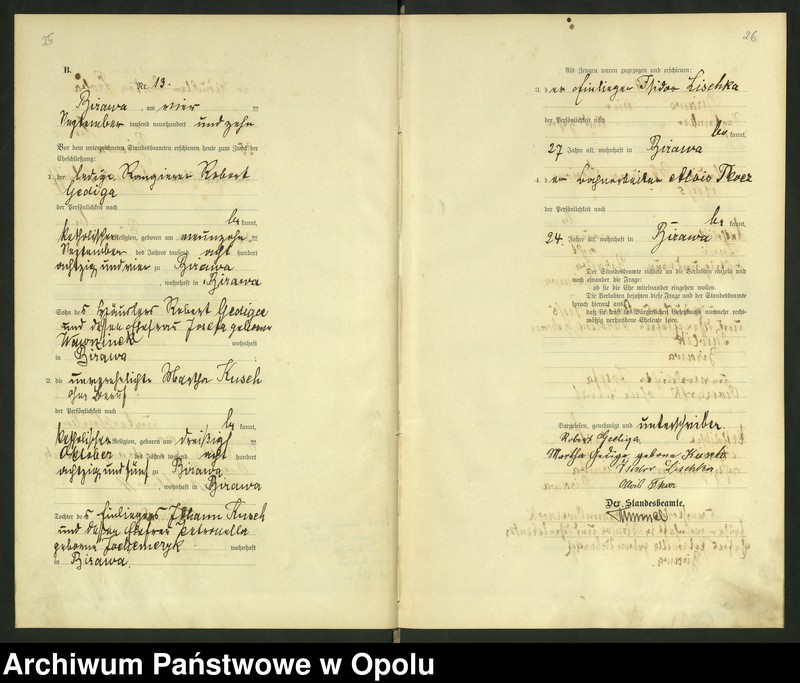 25
B.
Nr. 13.
Birawa, am vier
September tausend neunhundert und zehn
Vor dem unterzeichneten Standesbeamten erschienen heute zum Zweck der
Eheschließung:
1. der ledige Rangierer Robert
Gediga
der Persönlichkeit nach
be kannt,
katholischer Religion, geboren am neunzehn
September des Jahres tausend acht hundert
achtzig und vier zu Birawa
, wohnhaft in Birawa
Sohn des Häuslers Robert Gediga
und dessen Ehefrau Josefa geborene
wohnhaft
in Birawa ;
2. die unverehelichte Martha Kusch
ohne Beruf
der Persönlichkeit nach
be kannt,
katholischer Religion, geboren am dreißig
Oktober des Jahres tausend acht hundert
achtzig und fünf zu Birawa
, wohnhaft in Birawa
Tochter des Einliegers Johann Kusch
und dessen Ehefrau Petronella
geborene wohnhaft
in Birawa.
26
Als Zeugen waren zugezogen und erschienen:
3. der Einlieger Isidor Lischka
der Persönlichkeit nach
be kannt,
27 Jahre alt, wohnhaft in Birawa
4. der Alois Tkocz
der Persönlichkeit nach
be kannt,
24 Jahre alt, wohnhaft in Birawa
Der Standesbeamte richtete an die Verlobten einzeln und
nach einander die Frage:
ob sie die Ehe miteinander eingehen wollen.
Die Verlobten bejahten diese Frage und der Standesbeamte
sprach hierauf aus,
daß sie kraft des Bürgerlichen Gesetzbuchs nunmehr recht-
mäßig verbundene Eheleute seien.
Vorgelesen, genehmigt und unterschrieben.
Robert Gediga
Martha Gediga geborne Kusch
Isidor Lischka
Alois
Der Standesbeamte.
Archiwum Państwowe w Opolu